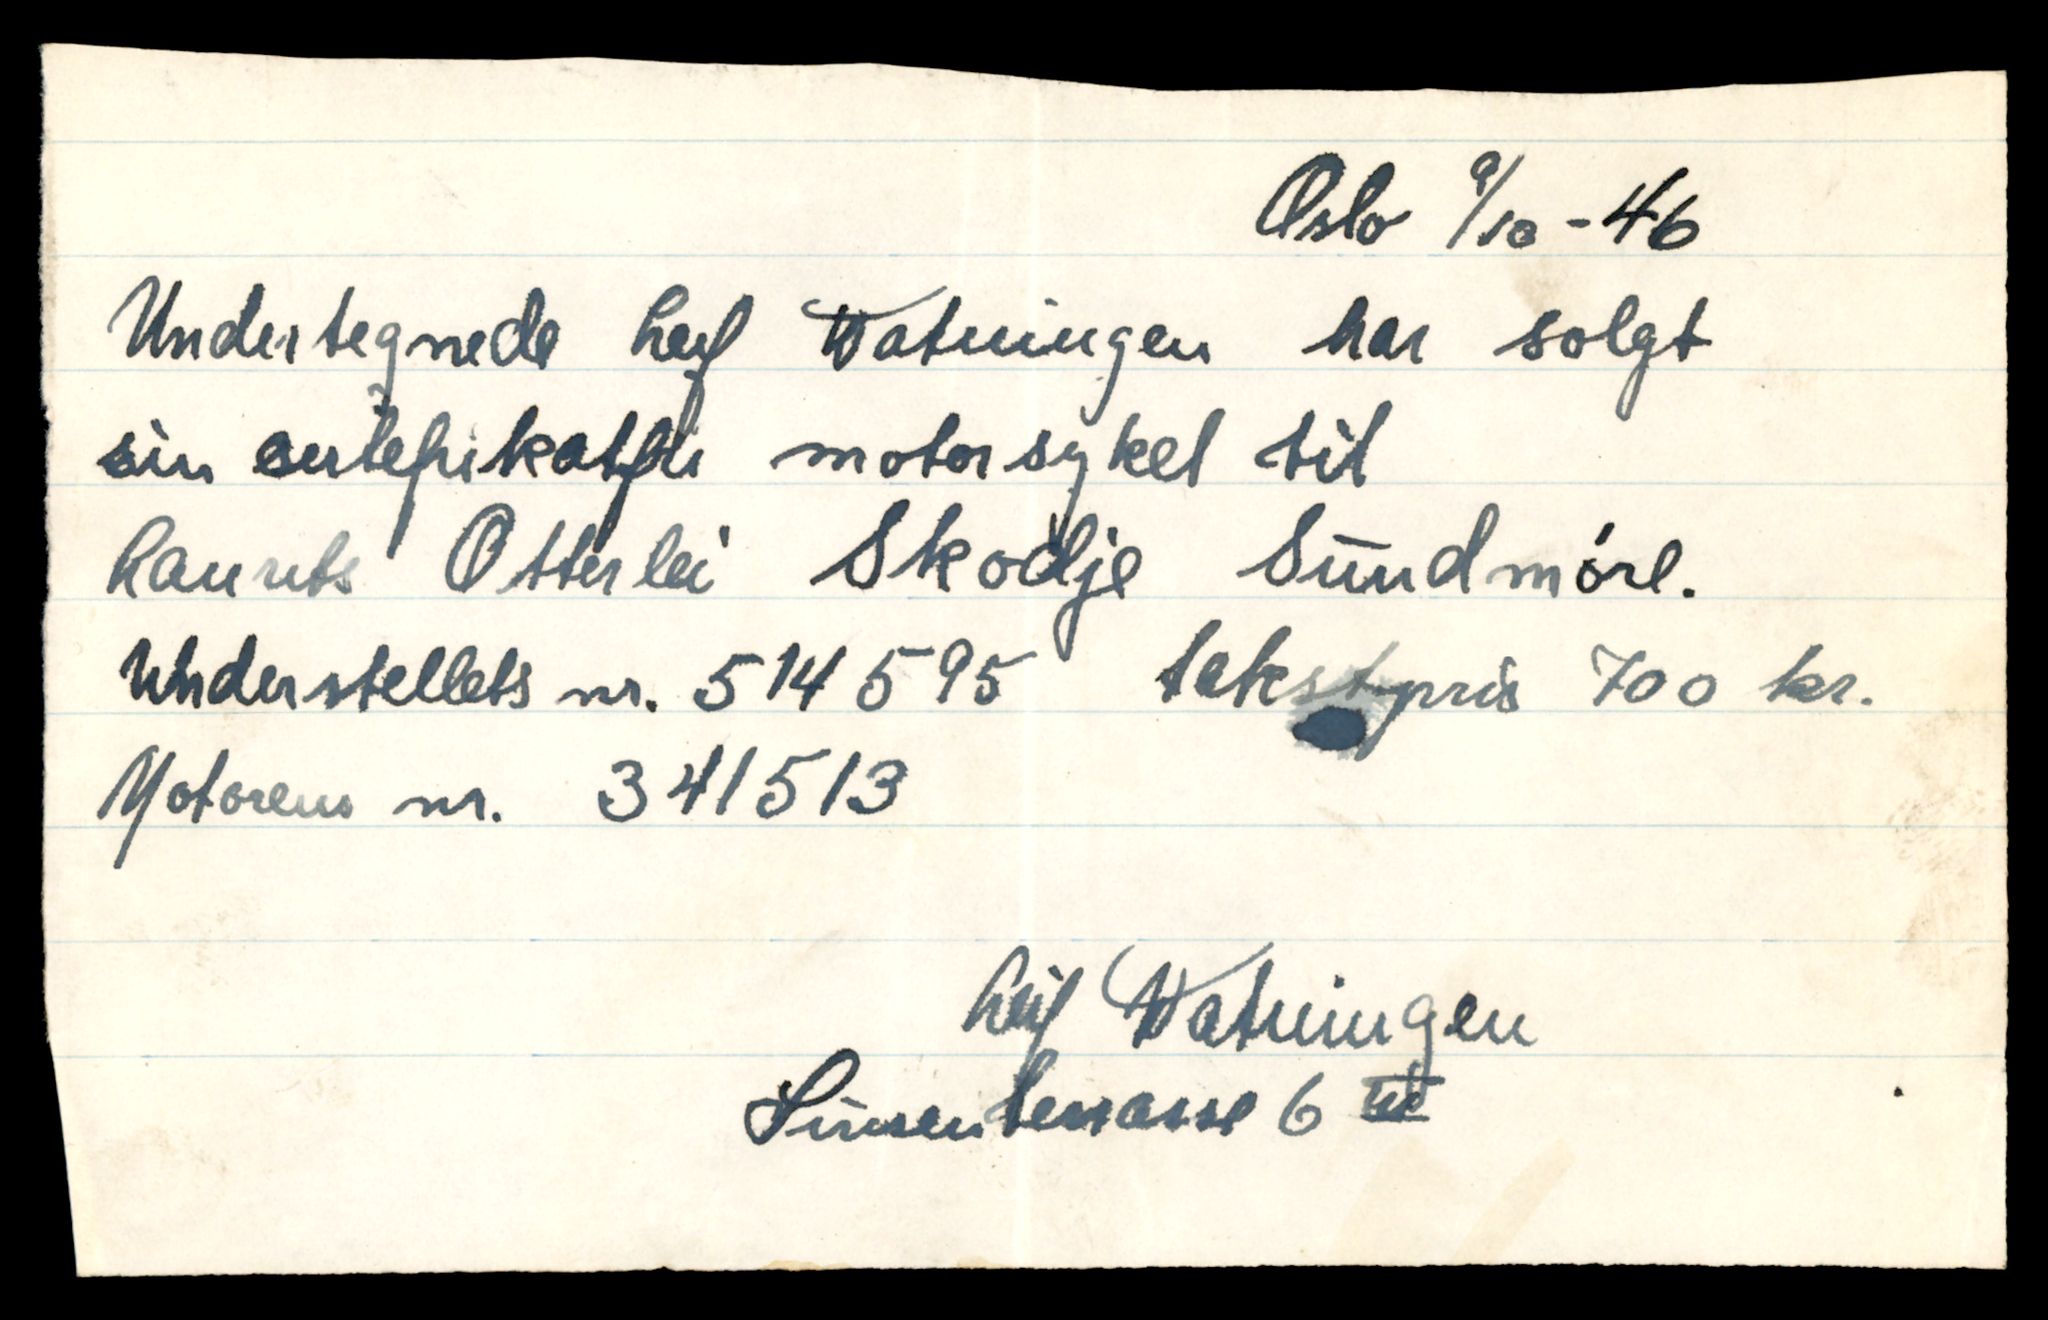 Oslo 9/10 - 46
Undertegnede Leif Watningen har solgt
sin sertefikatfri motorsykel til
Laurits Otterlei Skodje Sūndmöre.
Understellets nr. 514595 takstpris 700 kr.
Motorens nr. 341513
Leif Watningen
Sinsenterrasse 6 III